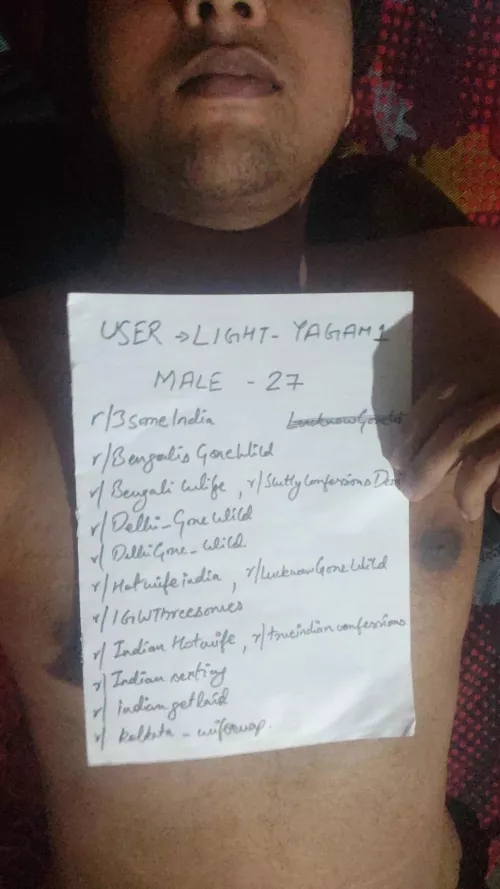 USER → LIGHT-YAGAMI
MALE - 27
r/3someIndia LucknowGoneWi
r/Bengalis GoneWild
r/Bengali Wife, r/SluttyConfessionsDesi
r/Delhi_GoneWild
r/DelhiGone_Wild
r/Hotwifeindia, r/LucknowGoneWild
r/IGWThreesomes
r/Indian Hotwife, r/trueindianconfessions
r/Indian sexting
r/indiangetlaid
r/kolkata_wifeswap.